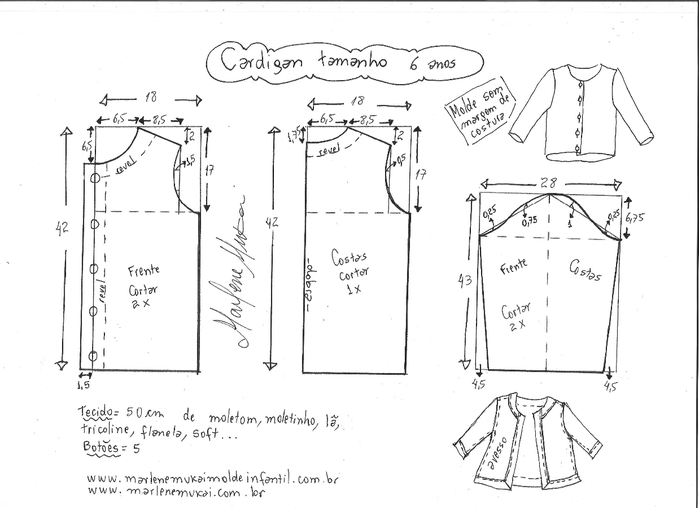 Cardigan tamanho 6 anos
Molde sem
margem de
costura
18
6,5 8,5
6,5
2
1,5
revel
17
42
Frente
Cortar
2x
revel
1,5
Marlene Mukai
18
6,5 8,5
1,75
2
0,5
revel
17
42
Costas
cortar
1x
-dobra-
28
0,25
0,75
1
0,25
6,75
43
Frente
Costas
Cortar
2x
4,5
4,5
Tecido= 50 cm de moletom, moletinho, lã,
tricoline, flanela, soft...
Botões = 5
www.marlenemukaimoldeinfantil.com.br
www.marlenemukai.com.br
avesso